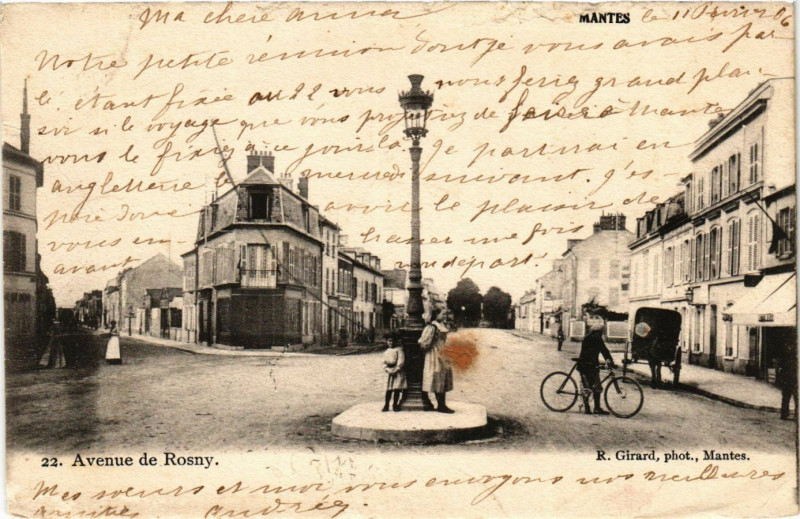 Ma chère Anna MANTES le 11 Février 06
Notre petite réunion dont je vous avais par
lé étant fixée au 22 vous nous feriez grand plai-
sir si le voyage que vous projetez de faire à Mantes
vous le fixiez à ce jour là. Je partirai en
angleterre le mercredi suivant. J'es-
père donc avoir le plaisir de
vous en baser une fois
avant mon départ.
22. Avenue de Rosny.
R. Girard, phot., Mantes.
Mes soeurs et moi vous envoyons nos meilleures
amitiés Andrée.